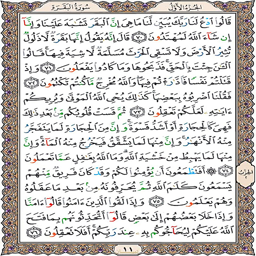 الجزء الأول سورة البقرة
قالوا ادع لنا ربك يبين لنا ما هي إن البقر تشابه علينا وإنا
إن شاء الله لمهتدون ٧٠ قال إنه يقول إنها بقرة لا ذلول
تثير الأرض ولا تسقي الحرث مسلمة لا شية فيها قالوا
الآن جئت بالحق فذبحوها وما كادوا يفعلون ٧١ وإذ
قتلتم نفسا فادارأتم فيها والله مخرج ما كنتم تكتمون ٧٢
فقلنا اضربوه ببعضها كذلك يحيي الله الموتى ويريكم
آياته لعلكم تعقلون ٧٣ ثم قست قلوبكم من بعد ذلك
فهي كالحجارة أو أشد قسوة وإن من الحجارة لما يتفجر
منه الأنهار وإن منها لما يشقق فيخرج منه الماء وإن
منها لما يهبط من خشية الله وما الله بغافل عما تعملون
٧٤ أفتطمعون أن يؤمنوا لكم وقد كان فريق منهم
يسمعون كلام الله ثم يحرفونه من بعد ما عقلوه
وهم يعلمون ٧٥ وإذا لقوا الذين آمنوا قالوا آمنا
وإذا خلا بعضهم إلى بعض قالوا أتحدثونهم بما فتح
الله عليكم ليحاجوكم به عند ربكم أفلا تعقلون ٧٦
١١